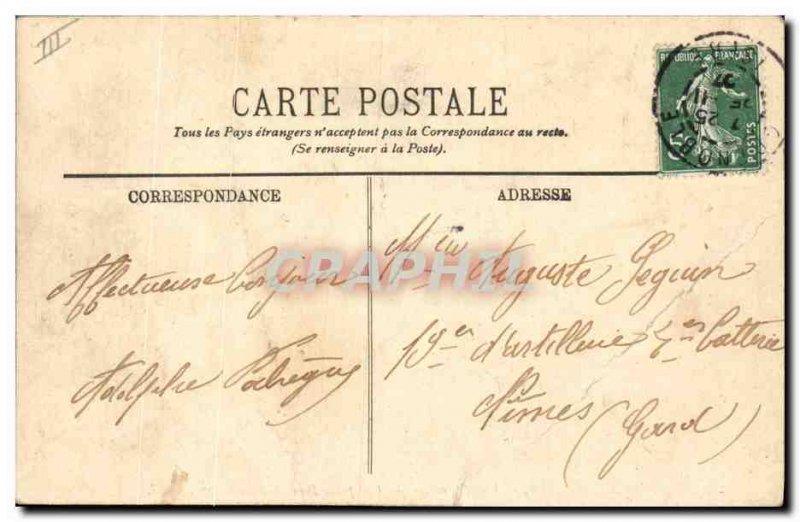 III
CARTE POSTALE
Tous les Pays étrangers n'acceptent pas la Correspondance au recto.
(Se renseigner à la Poste).
CORRESPONDANCE
ADRESSE
REPUBLIQUE FRANÇAISE
POSTES
CRAPHIL
Affectueuse bonjour
Adolphe
Auguste Seguin
19 d'artillerie batterie
Nîmes (Gard)